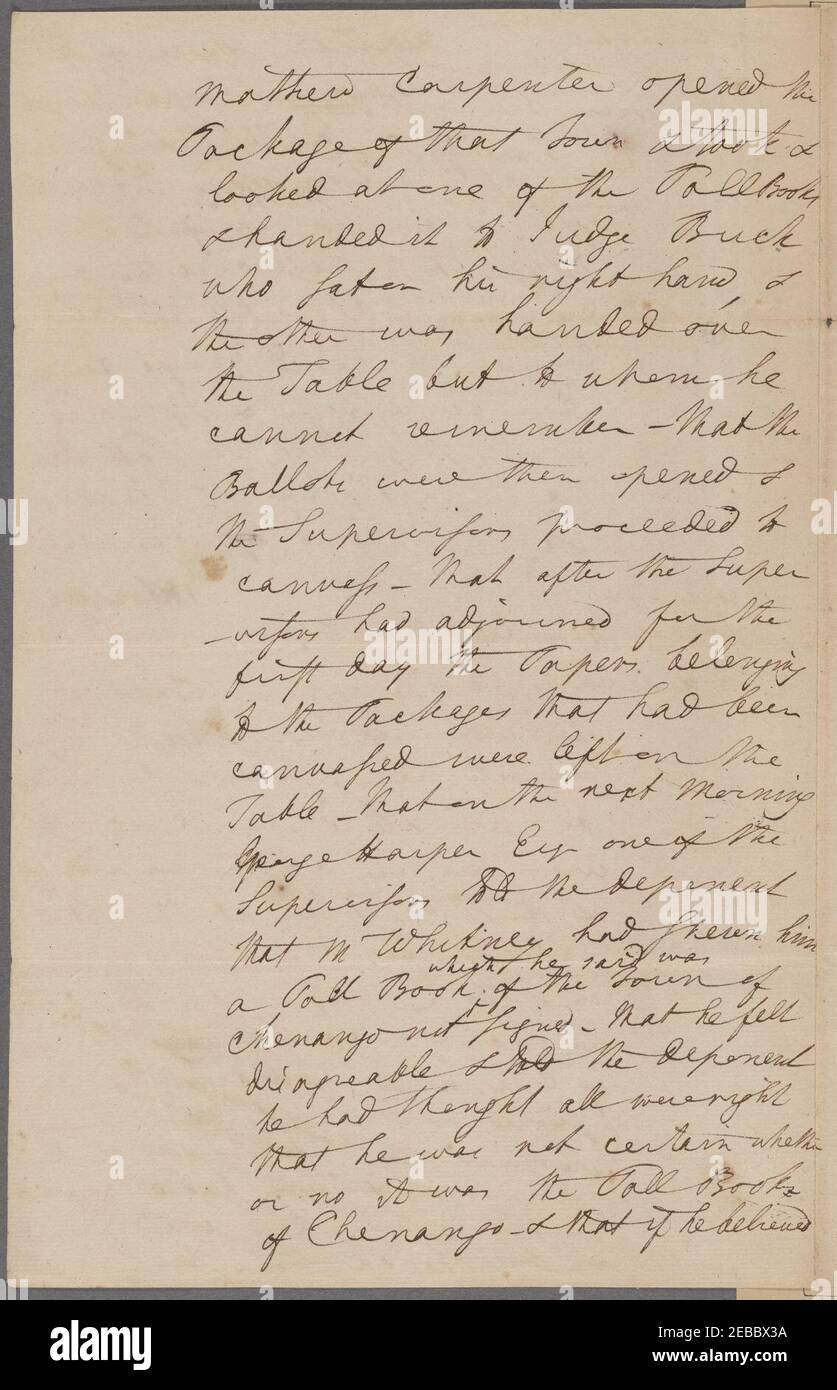 Mathew Carpenter opened the
Package of that Town & took &
looked at one of the Poll Books
& handed it to Judge Buck
who sat on his right hand, &
the other was handed over
the Table but to whom he
cannot remember – that the
Ballots were then opened &
the Supervisors proceeded to
canvass – that after the Super
-visors had adjourned for the
first day the Papers belonging
to the Packages that had been
canvassed were left on the
Table – that on the next Morning
George Harper Esq one of the
Supervisors told the deponent
that Mr Whitney had shewn him
which he said was
a Poll Book of the Town of
Chenango not signed – that he felt
disagreable & told the deponent
he had thought all were right
that he was not certain whether
or no it was the Poll Books
of Chenango – & that if he believed
alamy
alamy
Image ID: 2EBBX3A
www.alamy.com